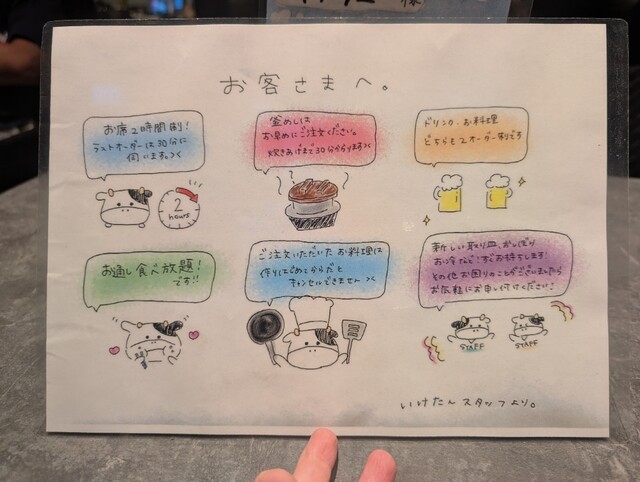 様
お客さまへ。
お席2時間制!
ラストオーダーは30分に
伺います
釜めしは
お早めにご注文ください。
炊きあげまで30分かかります
ドリンク、お料理
どちらも2オーダー制です
2
hours
お通し食べ放題!
です!!
ご注文いただいたお料理は
作りはじめてからだと
キャンセルできません
新しい取り皿、おしぼり
お冷など!すぐお持ちします!
その他お困りのことがございましたら
お気軽にお申し付けください!
STAFF
STAFF
いけたんスタッフより。